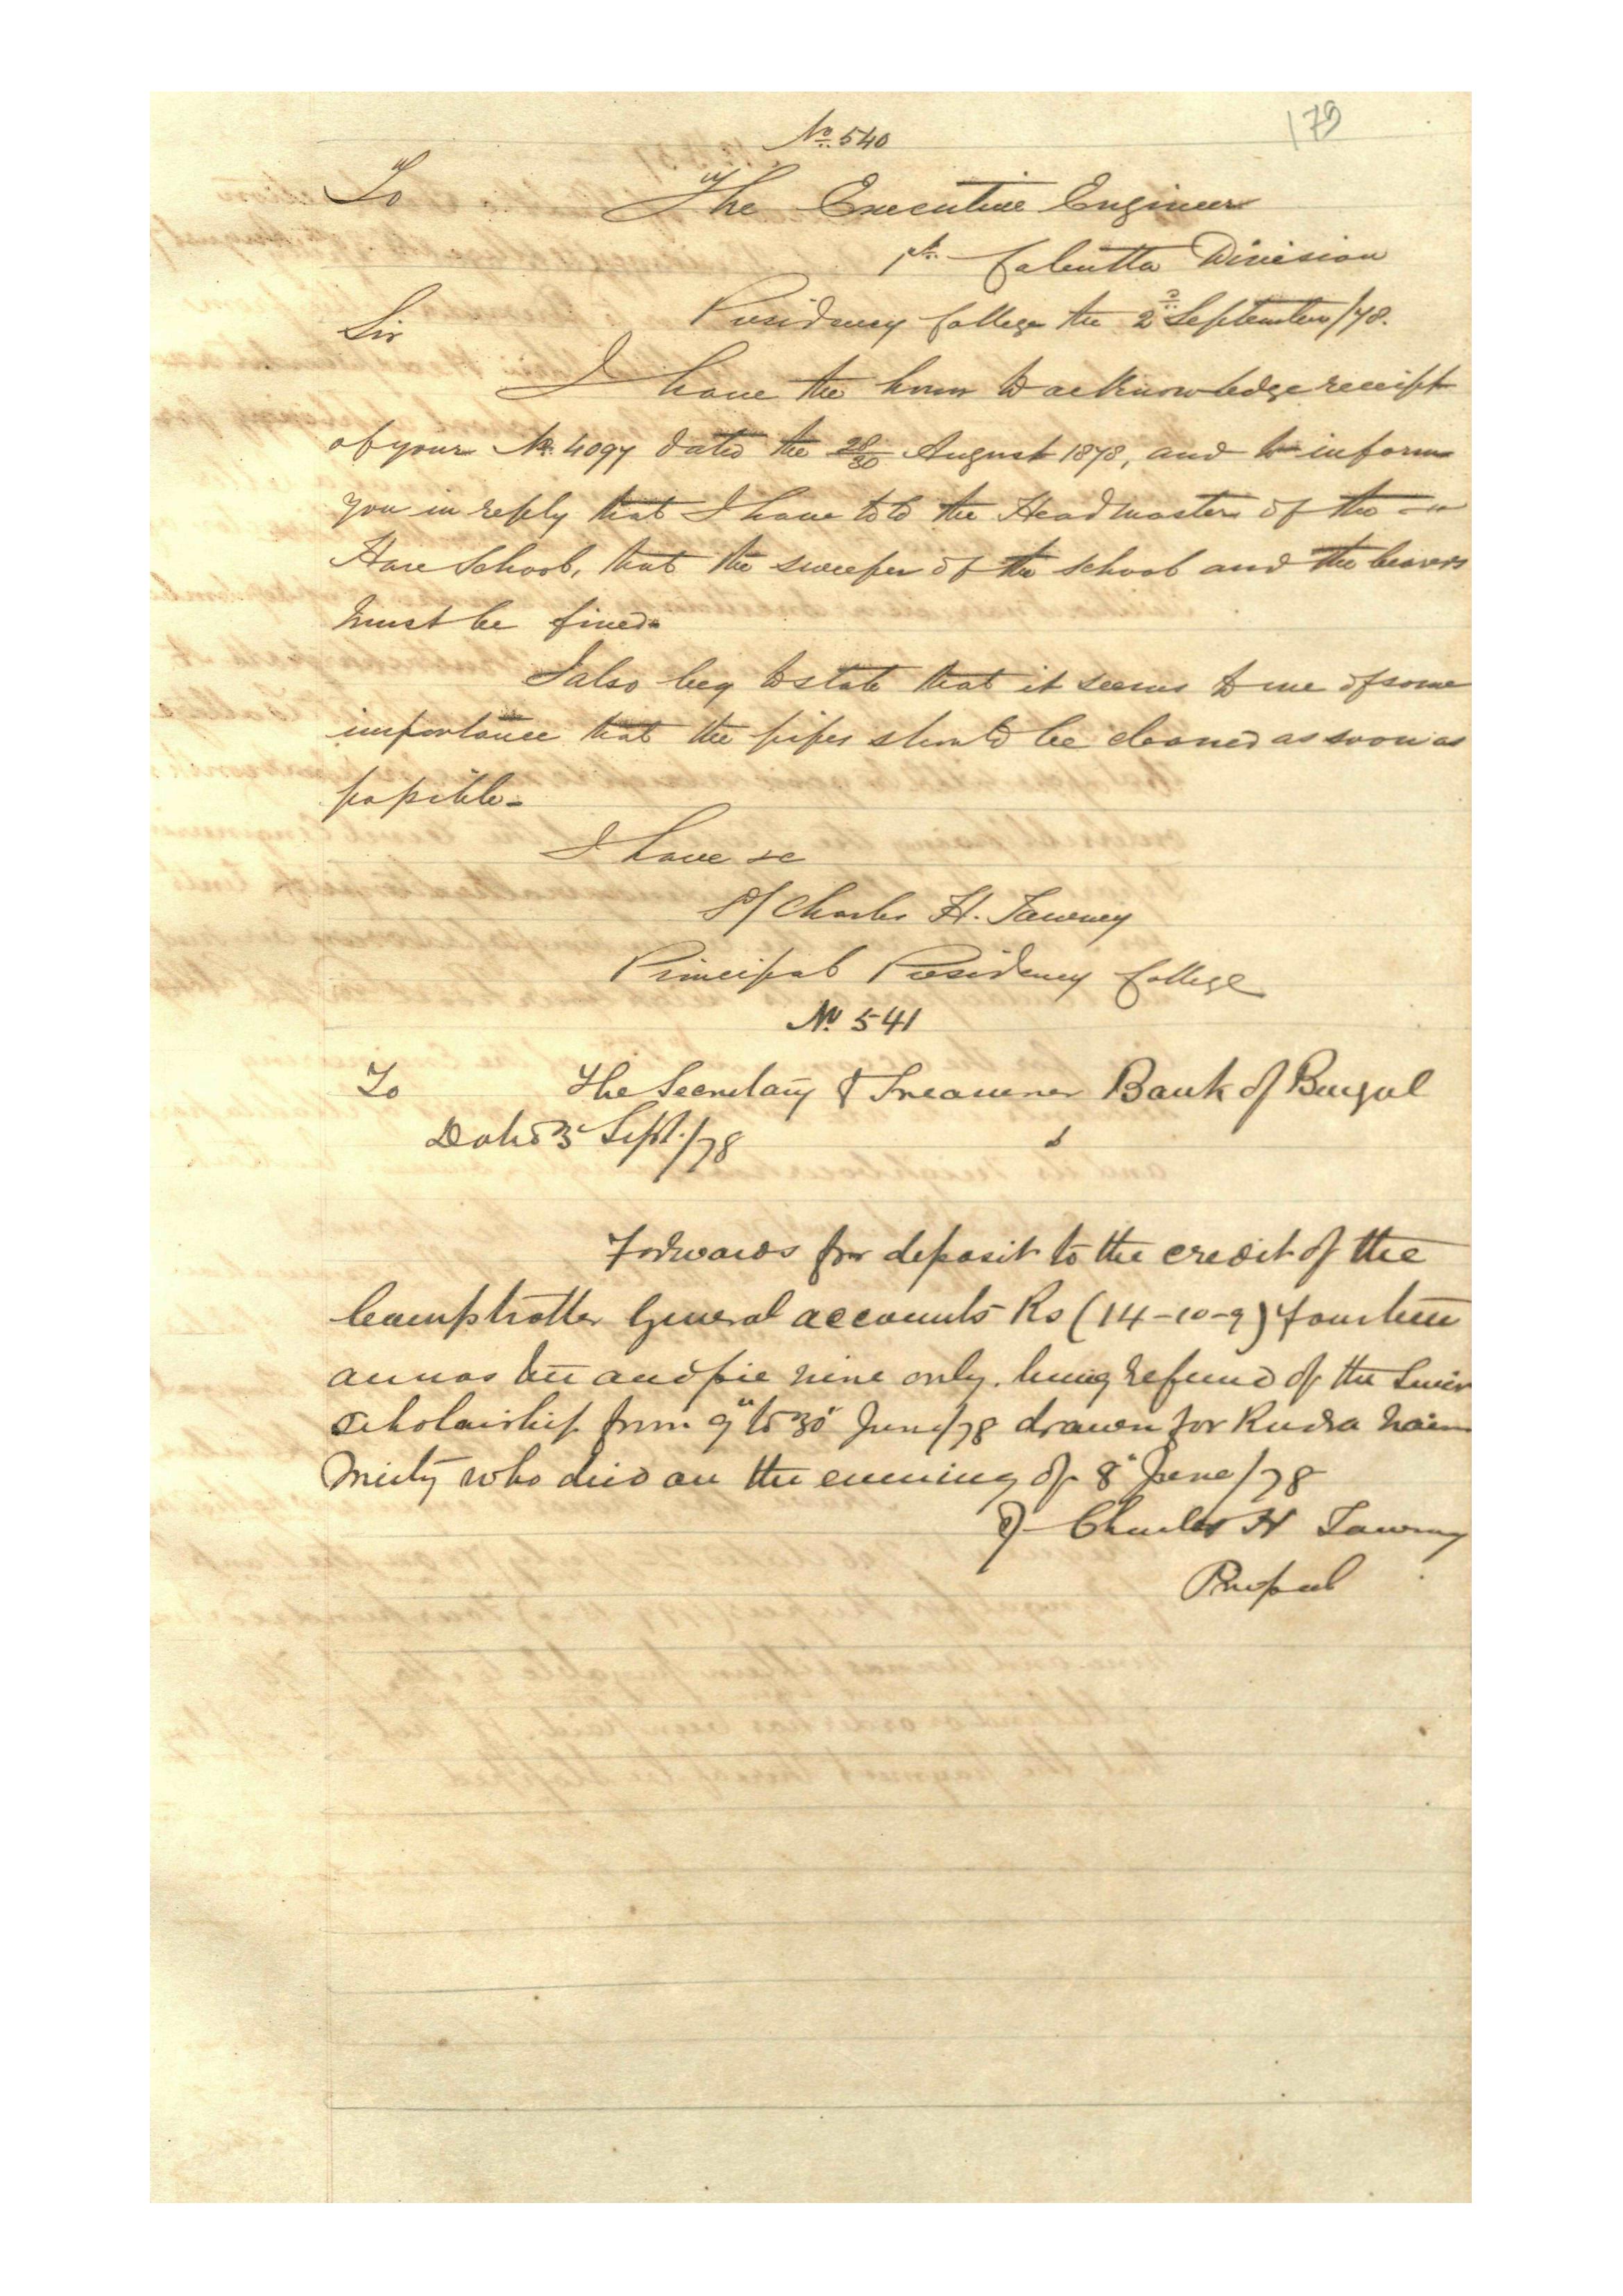 179
No. 540
To The Executive Engineer
1st. Calcutta Division
Presidency College the 2nd September/78.
Sir
I have the honor to acknowledge receipt
of your No. 4097 dated the 28/30 August 1878, and to inform
you in reply that I have told the Headmaster of the
Hare School, that the sweeper of the school and the bearers
must be fined.
I also beg to state that it seems to me of some
importance that the pipes should be cleaned as soon as
possible.
I have &c
Sd/ Charles H. Tawney
Principal Presidency College
No. 541
To The Secretary & Treasurer Bank of Bengal
Dated 3 Sept./78
Forwards for deposit to the credit of the
Comptroller General accounts Rs (14-10-9) fourteen
annas ten and pie nine only. being refund of the
Scholarship from 9th to 30 June/78 drawn for Rudra
who died on the evening of 8 June/78
Charles H Tawney